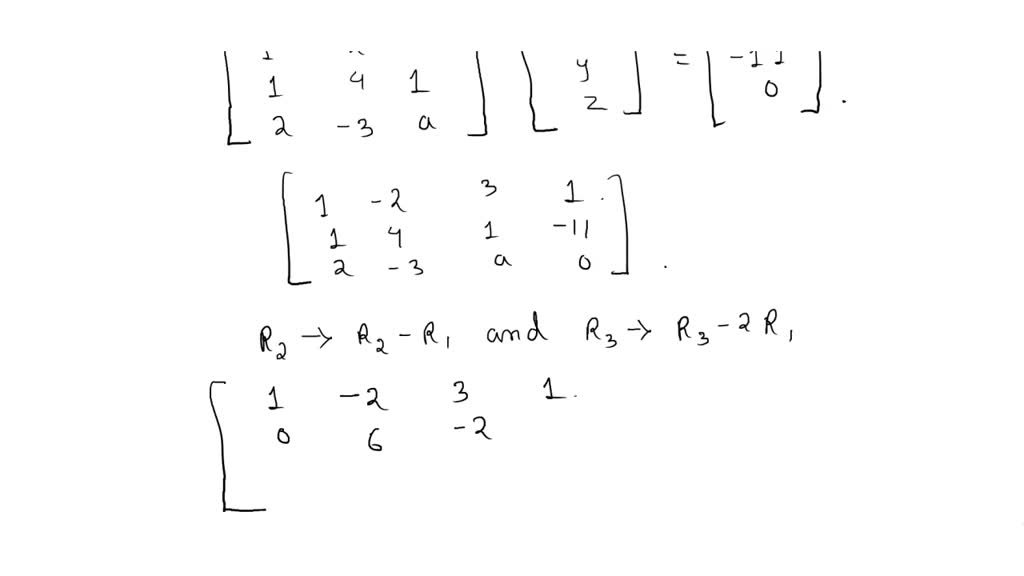 1 4 1 y = -11
2 -3 a z 0 .
1 -2 3 1 .
1 4 1 -11
2 -3 a 0 .
R2 → R2 - R1 and R3 → R3 - 2 R1
1 -2 3 1 .
0 6 -2